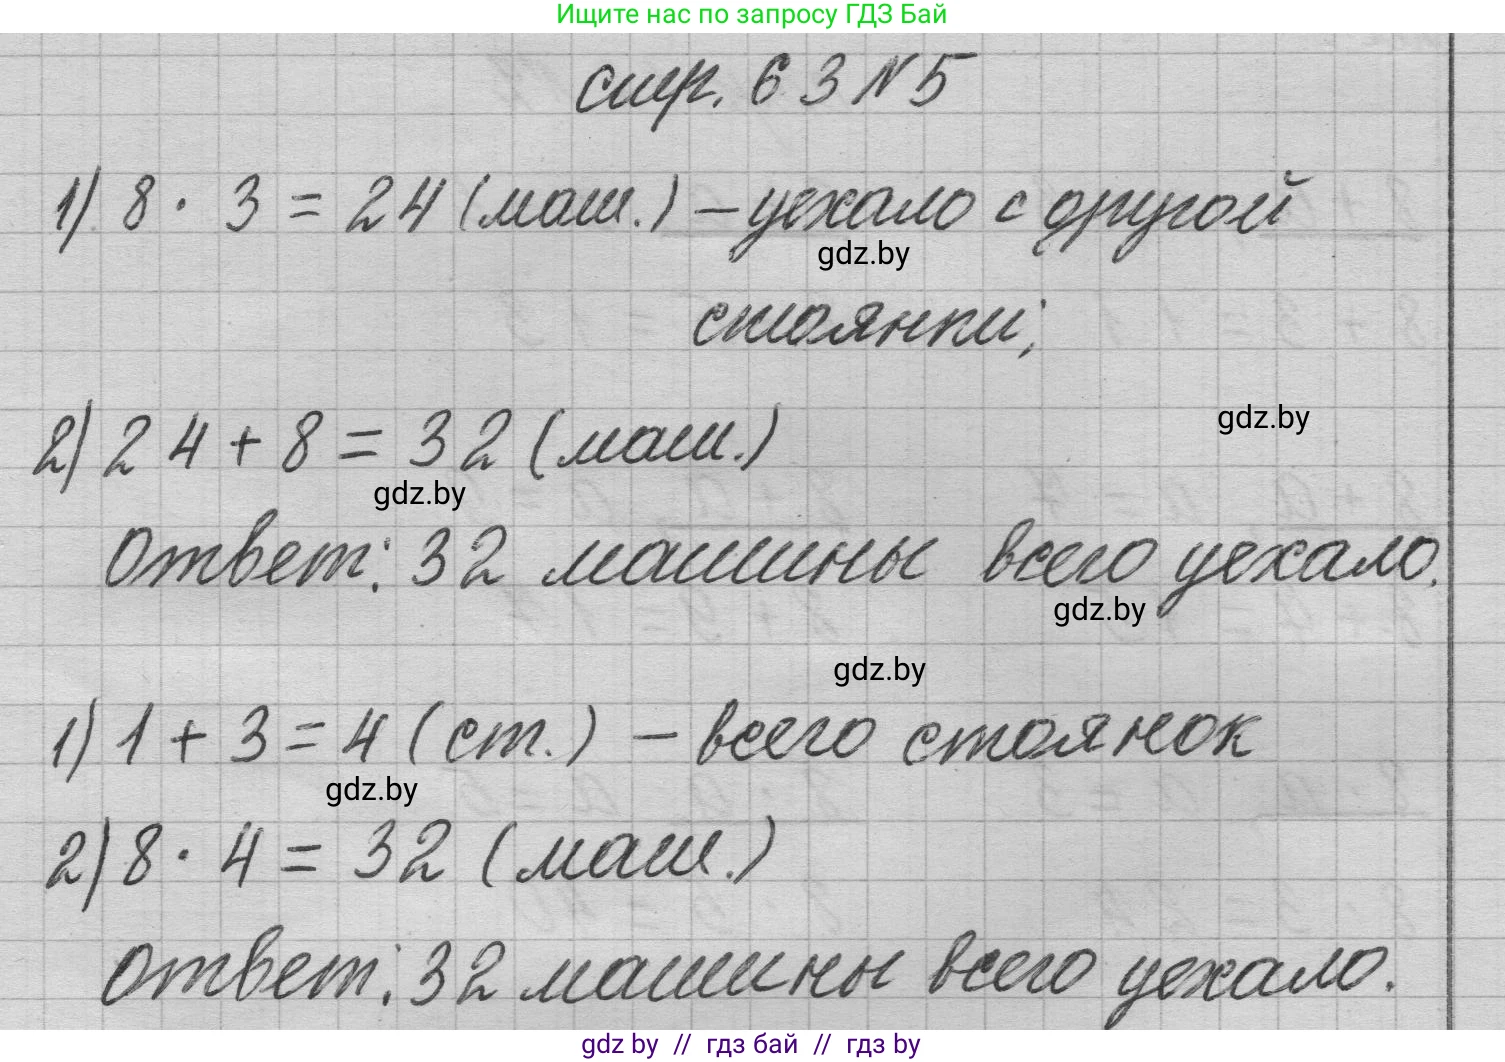 Ищите нас по запросу ГДЗ Бай
стр. 63 N 5
1) 8 · 3 = 24 (маш.) – уехало с другой
gdz.by
стоянки;
gdz.by
2) 24 + 8 = 32 (маш.)
gdz.by
Ответ: 32 машины всего уехало.
gdz.by
gdz.by
1) 1 + 3 = 4 (ст.) – всего стоянок
gdz.by
2) 8 · 4 = 32 (маш.)
Ответ: 32 машины всего уехало.
gdz by // гдз бай // гдз by